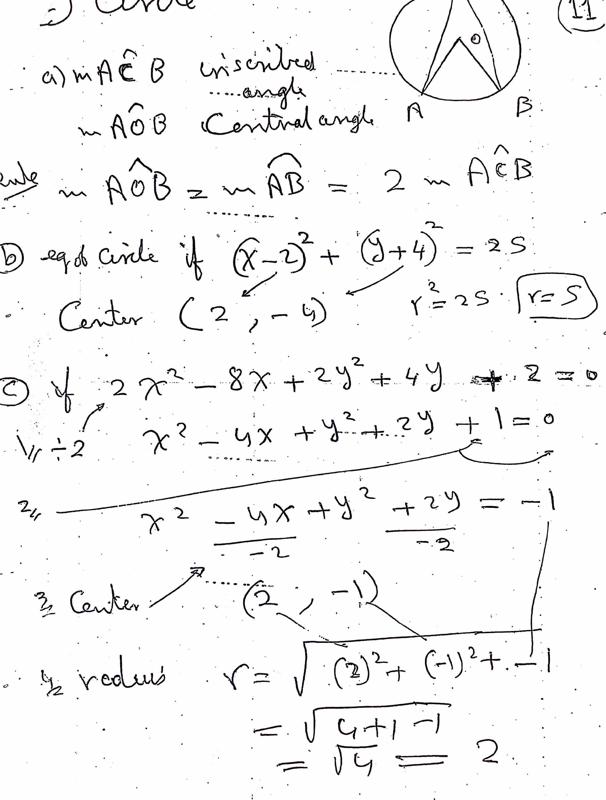 Circle
11
O
A
B
a) m AĈB inscribed angle
m AÔB Central angle
m AÔB = m A͡B = 2 m AĈB
b) eq of circle if (x-2)² + (y+4)² = 25
Center (2, -4) r² = 25 r=5
c) if 2x² - 8x + 2y² + 4y + 2 = 0
1,, ÷2 x² - 4x + y² + 2y + 1 = 0
2,, x² - 4x + y² + 2y = -1
-2 -2
3 Center (2, -1)
4 radius r = √(2)² + (-1)² + -1
= √4+1-1
= √4 = 2